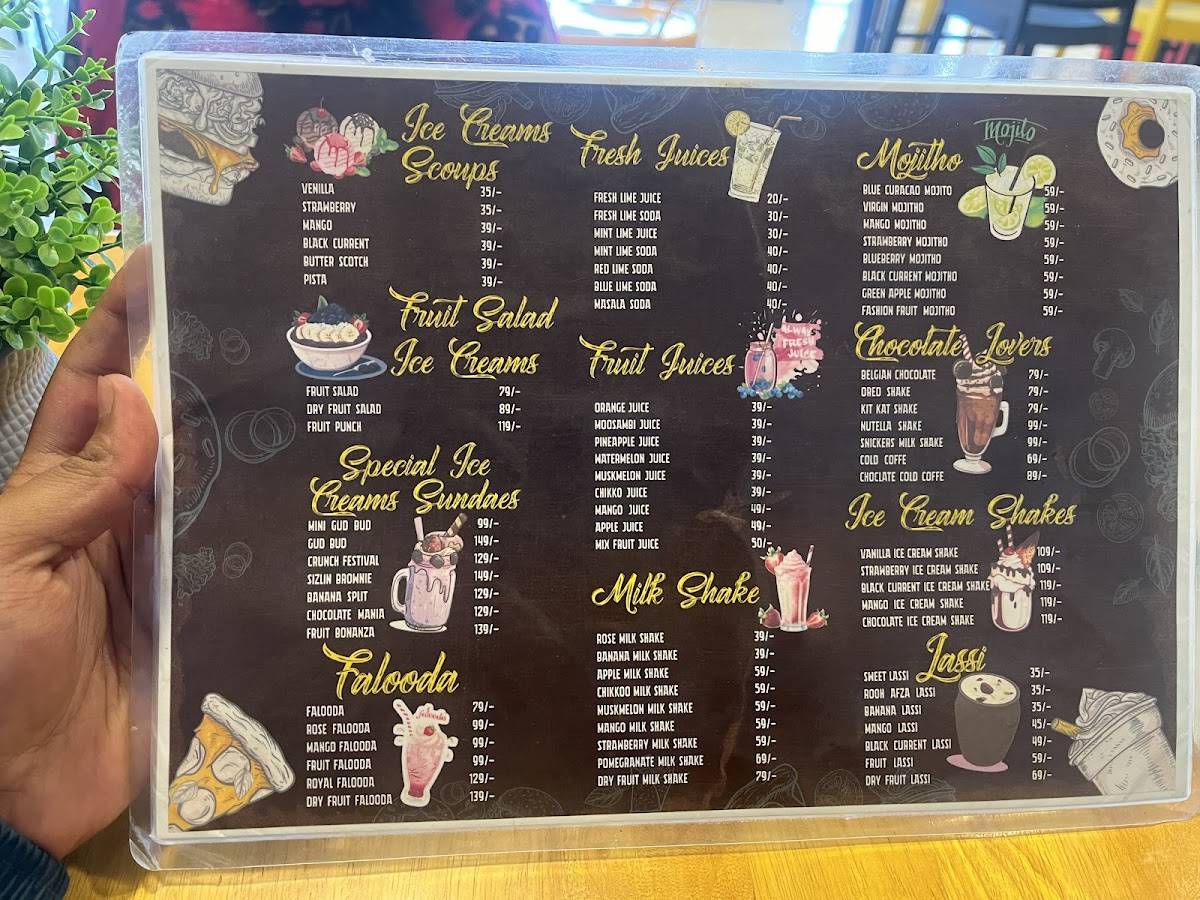 Ice Creams
Scoups
VENILLA 35/-
STRAWBERRY 35/-
MANGO 39/-
BLACK CURRENT 39/-
BUTTER SCOTCH 39/-
PISTA 39/-
Fruit Salad
Ice Creams
FRUIT SALAD 79/-
DRY FRUIT SALAD 89/-
FRUIT PUNCH 119/-
Special Ice
Creams Sundaes
MINI GUD BUD 99/-
GUD BUD 149/-
CRUNCH FESTIVAL 129/-
SIZLIN BROWNIE 149/-
BANANA SPLIT 129/-
CHOCOLATE MANIA 129/-
FRUIT BONANZA 139/-
Falooda
falooda
FALOODA 79/-
ROSE FALOODA 99/-
MANGO FALOODA 99/-
FRUIT FALOODA 99/-
ROYAL FALOODA 129/-
DRY FRUIT FALOODA 139/-
Fresh Juices
FRESH LIME JUICE 20/-
FRESH LIME SODA 30/-
MINT LIME JUICE 30/-
MINT LIME SODA 40/-
RED LIME SODA 40/-
BLUE LIME SODA 40/-
MASALA SODA 40/-
Fruit Juices
ALWAYS
FRESH
JUICE
ORANGE JUICE 39/-
MOOSAMBI JUICE 39/-
PINEAPPLE JUICE 39/-
WATERMELON JUICE 39/-
MUSKMELON JUICE 39/-
CHIKKO JUICE 39/-
MANGO JUICE 49/-
APPLE JUICE 49/-
MIX FRUIT JUICE 50/-
Milk Shake
ROSE MILK SHAKE 39/-
BANANA MILK SHAKE 39/-
APPLE MILK SHAKE 59/-
CHIKKOO MILK SHAKE 59/-
MUSKMELON MILK SHAKE 59/-
MANGO MILK SHAKE 59/-
STRAWBERRY MILK SHAKE 59/-
POMEGRANATE MILK SHAKE 69/-
DRY FRUIT MILK SHAKE 79/-
Mojitho
Mojito
BLUE CURACAO MOJITO 59/-
VIRGIN MOJITHO 59/-
MANGO MOJITHO 59/-
STRAWBERRY MOJITHO 59/-
BLUEBERRY MOJITHO 59/-
BLACK CURRENT MOJITHO 59/-
GREEN APPLE MOJITHO 59/-
FASHION FRUIT MOJITHO 59/-
Chocolate Lovers
BELGIAN CHOCOLATE 79/-
OREO SHAKE 79/-
KIT KAT SHAKE 79/-
NUTELLA SHAKE 99/-
SNICKERS MILK SHAKE 99/-
COLD COFFE 69/-
CHOCLATE COLD COFFE 89/-
Ice Cream Shakes
VANILLA ICE CREAM SHAKE 109/-
STRAWBERRY ICE CREAM SHAKE 109/-
BLACK CURRENT ICE CREAM SHAKE 119/-
MANGO ICE CREAM SHAKE 119/-
CHOCOLATE ICE CREAM SHAKE 119/-
Lassi
SWEET LASSI 35/-
ROOH AFZA LASSI 35/-
BANANA LASSI 35/-
MANGO LASSI 45/-
BLACK CURRENT LASSI 49/-
FRUIT LASSI 59/-
DRY FRUIT LASSI 69/-